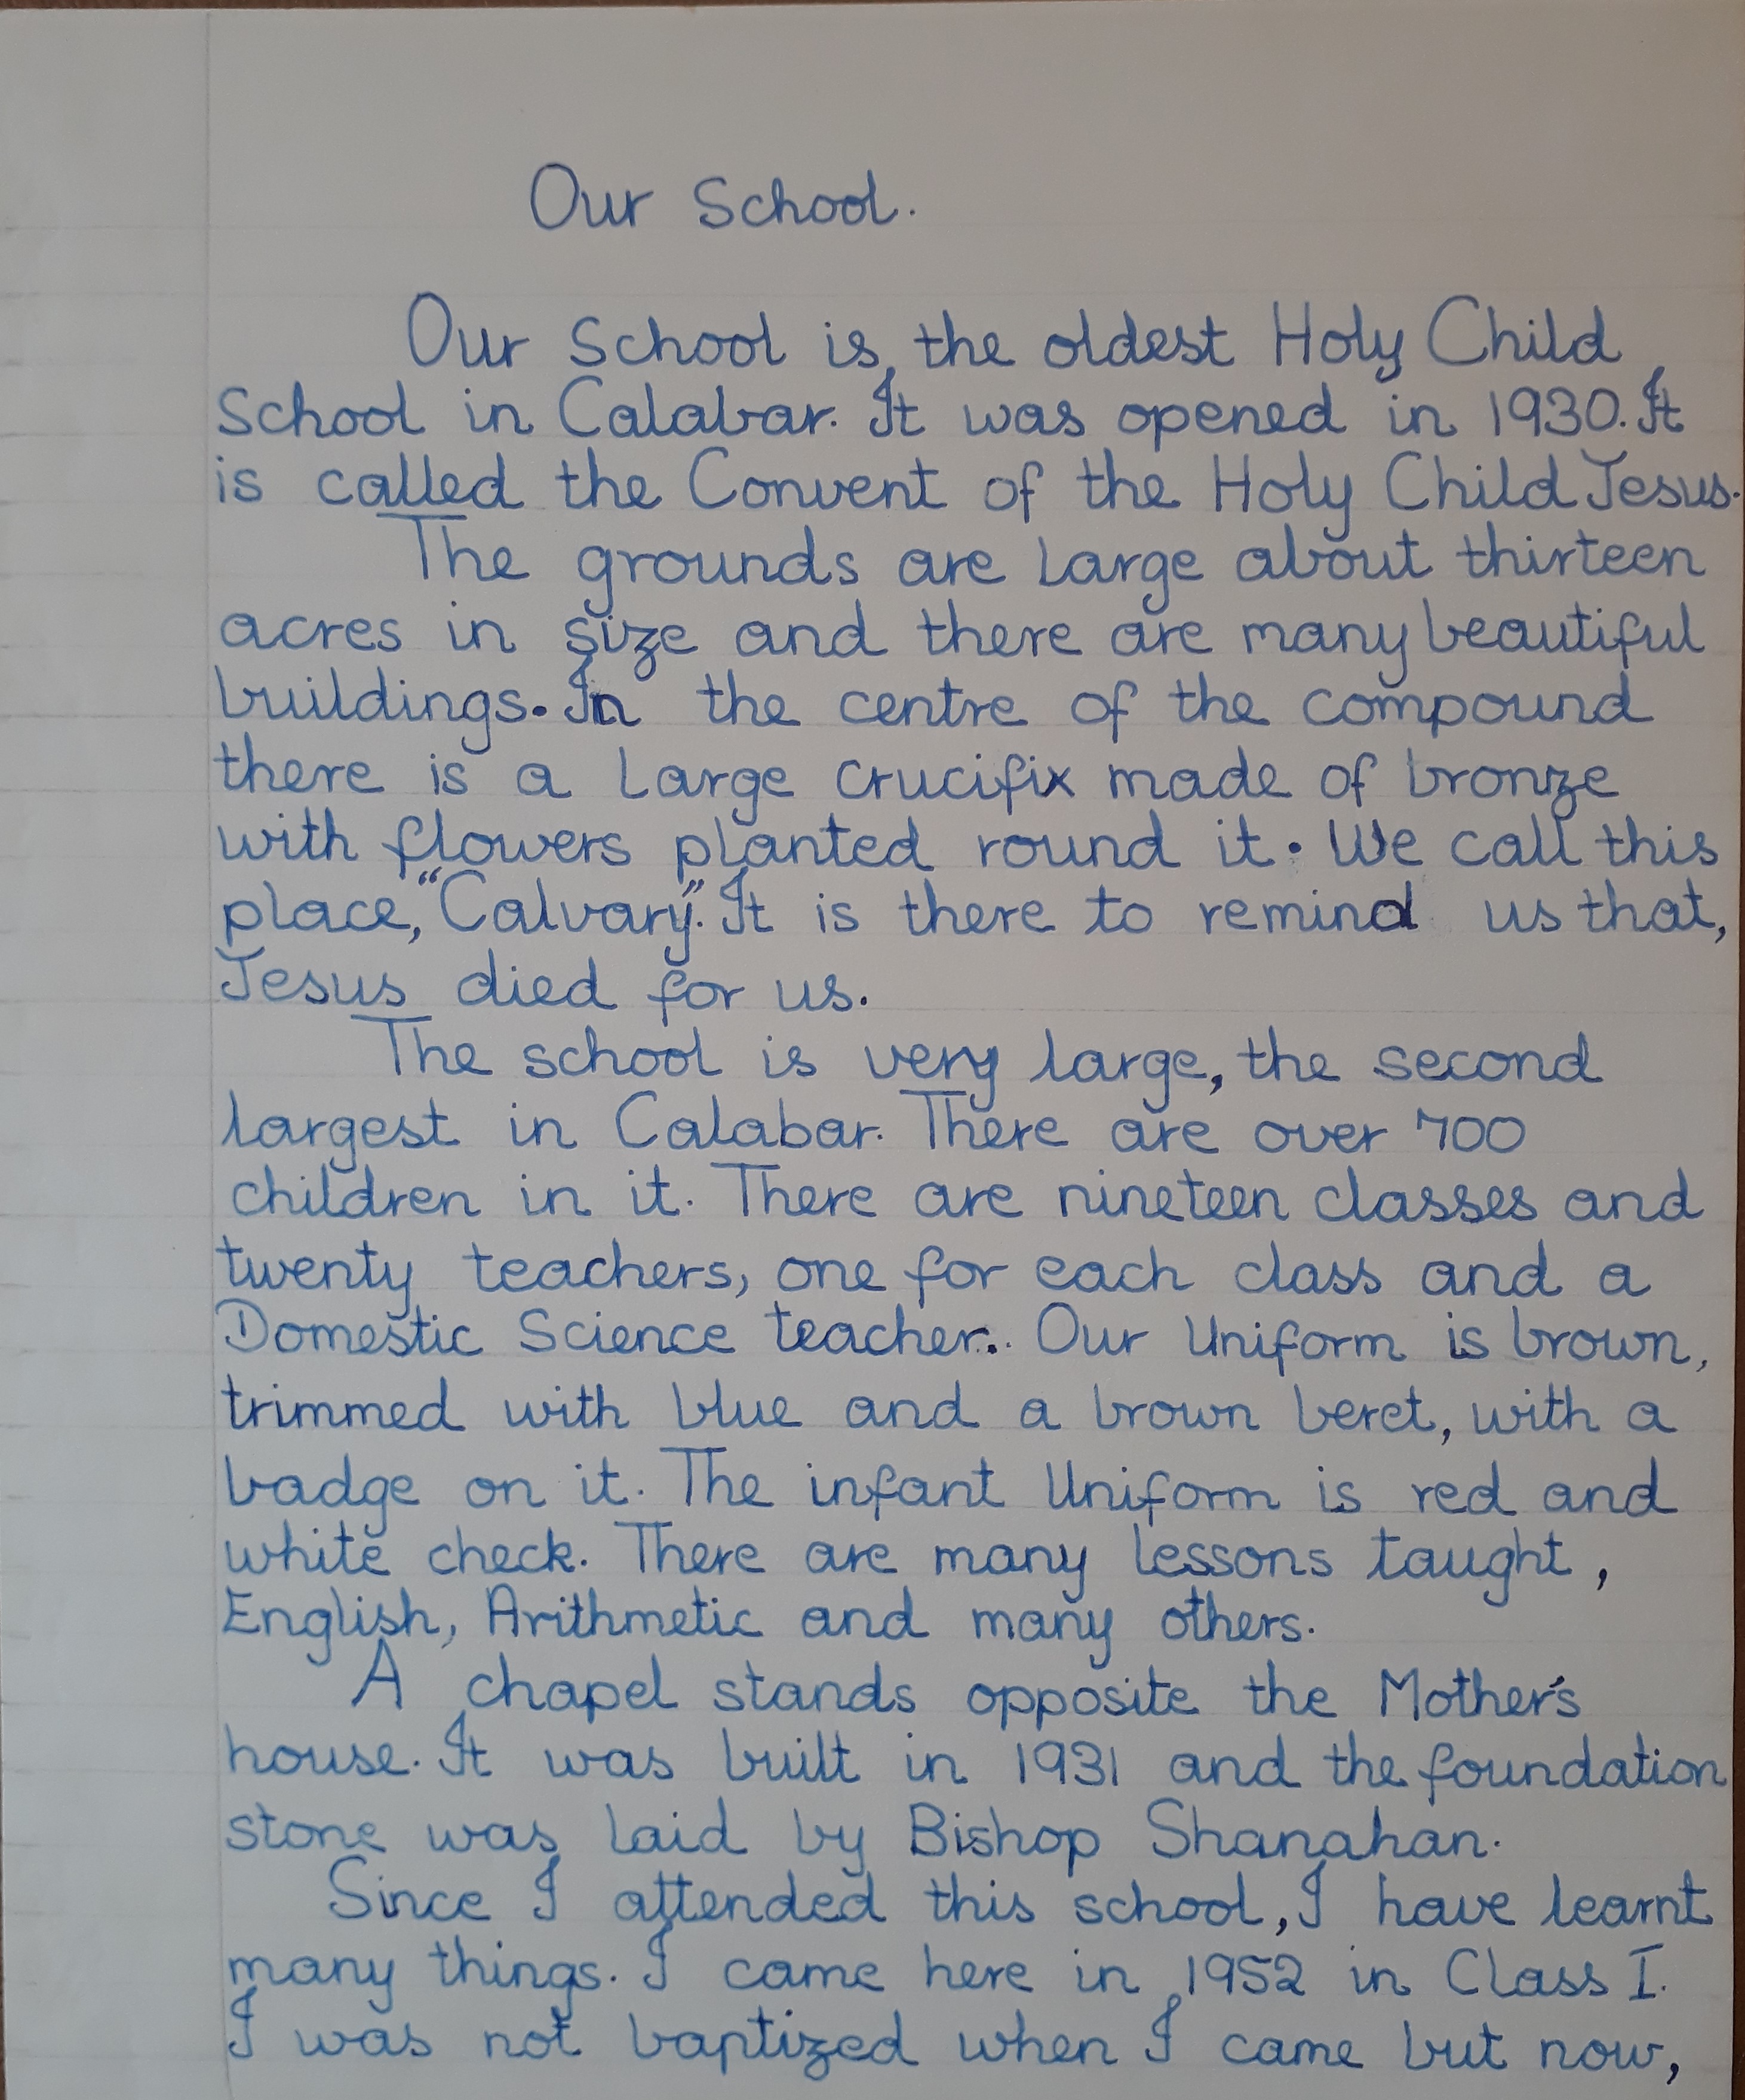 Our School.
Our School is the oldest Holy Child
School in Calabar. It was opened in 1930. It
is called the Convent of the Holy Child Jesus.
The grounds are large about thirteen
acres in size and there are many beautiful
buildings. In the centre of the compound
there is a large crucifix made of bronze
with flowers planted round it. We call this
place, "Calvary". It is there to remind us that,
Jesus died for us.
The school is very large, the second
largest in Calabar. There are over 700
children in it. There are nineteen classes and
twenty teachers, one for each class and a
Domestic Science teacher.. Our Uniform is brown,
trimmed with blue and a brown beret, with a
badge on it. The infant Uniform is red and
white check. There are many lessons taught,
English, Arithmetic and many others.
A chapel stands opposite the Mother's
house. It was built in 1931 and the foundation
stone was laid by Bishop Shanahan.
Since I attended this school, I have learnt
many things. I came here in 1952 in Class I.
I was not baptized when I came but now,